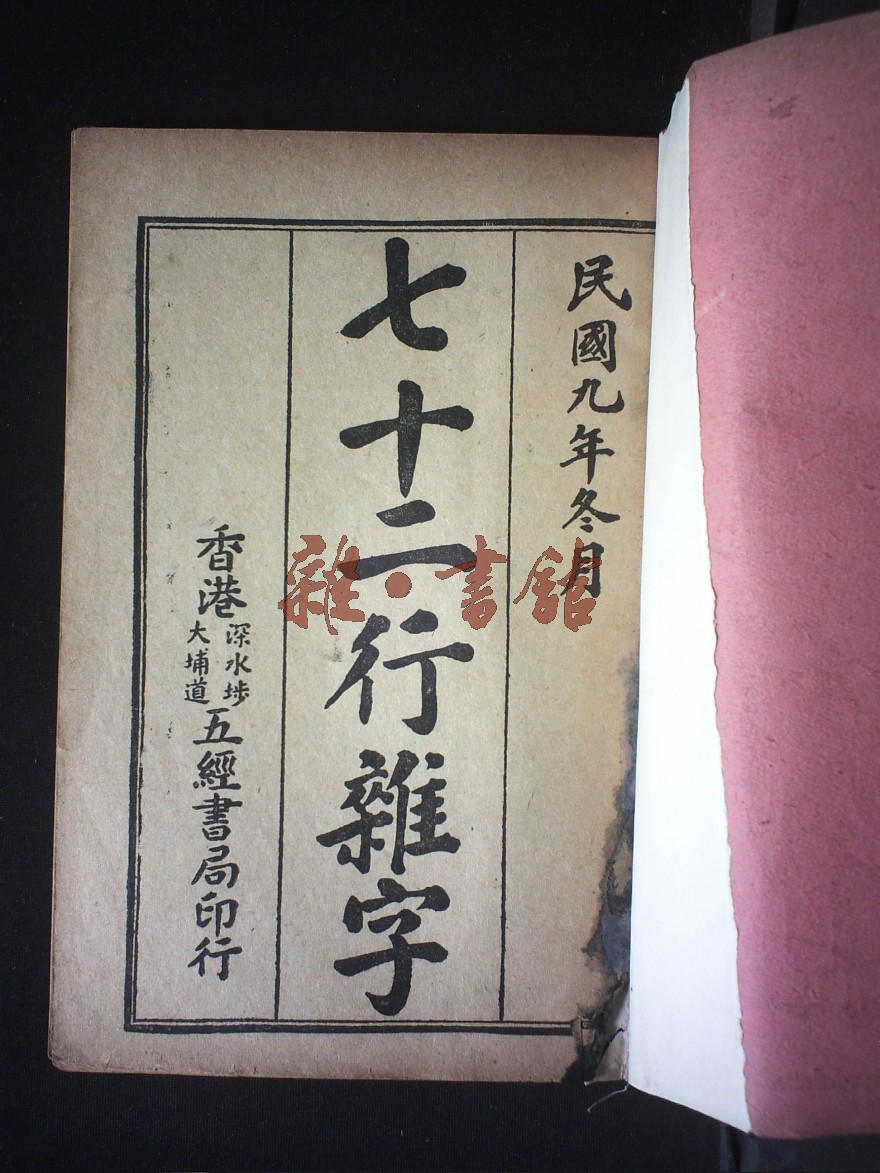 民國九年冬月
七十二行雜字
香港
深水埗
大埔道
五經書局印行
雜·書館